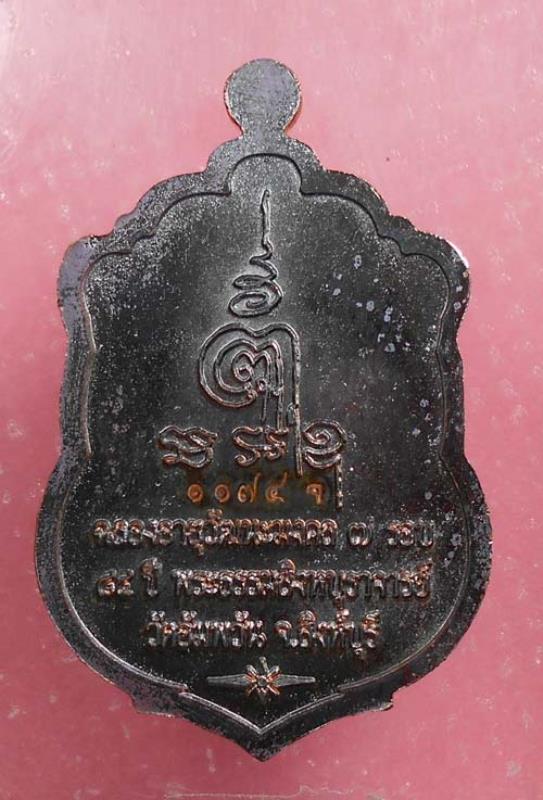 ๑๐๗๔ จ
ฉลองอายุวัฒนะมงคล ๗ รอบ
๘๔ ปี พระธรรมสิงหบุราจารย์
วัดอัมพวัน จ.สิงห์บุรี